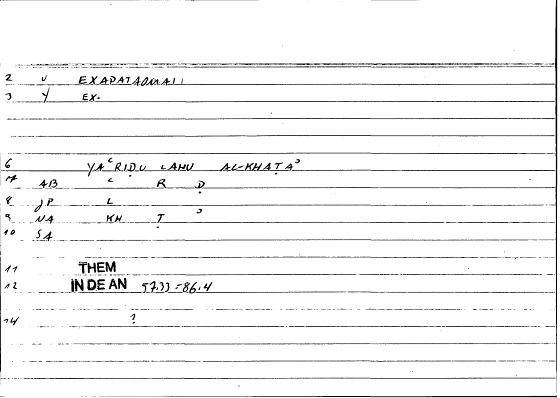 2 U EXAPATAOMAII
3 Y EX-
6 YAʿRIḌU LAHU AL-KHAṬAʾ
7A AB ʿ R Ḍ
8 JP L
9 NA KH Ṭ ʾ
10 SA
11 THEM
12 IN DE AN 57.33=86.4
14 ?